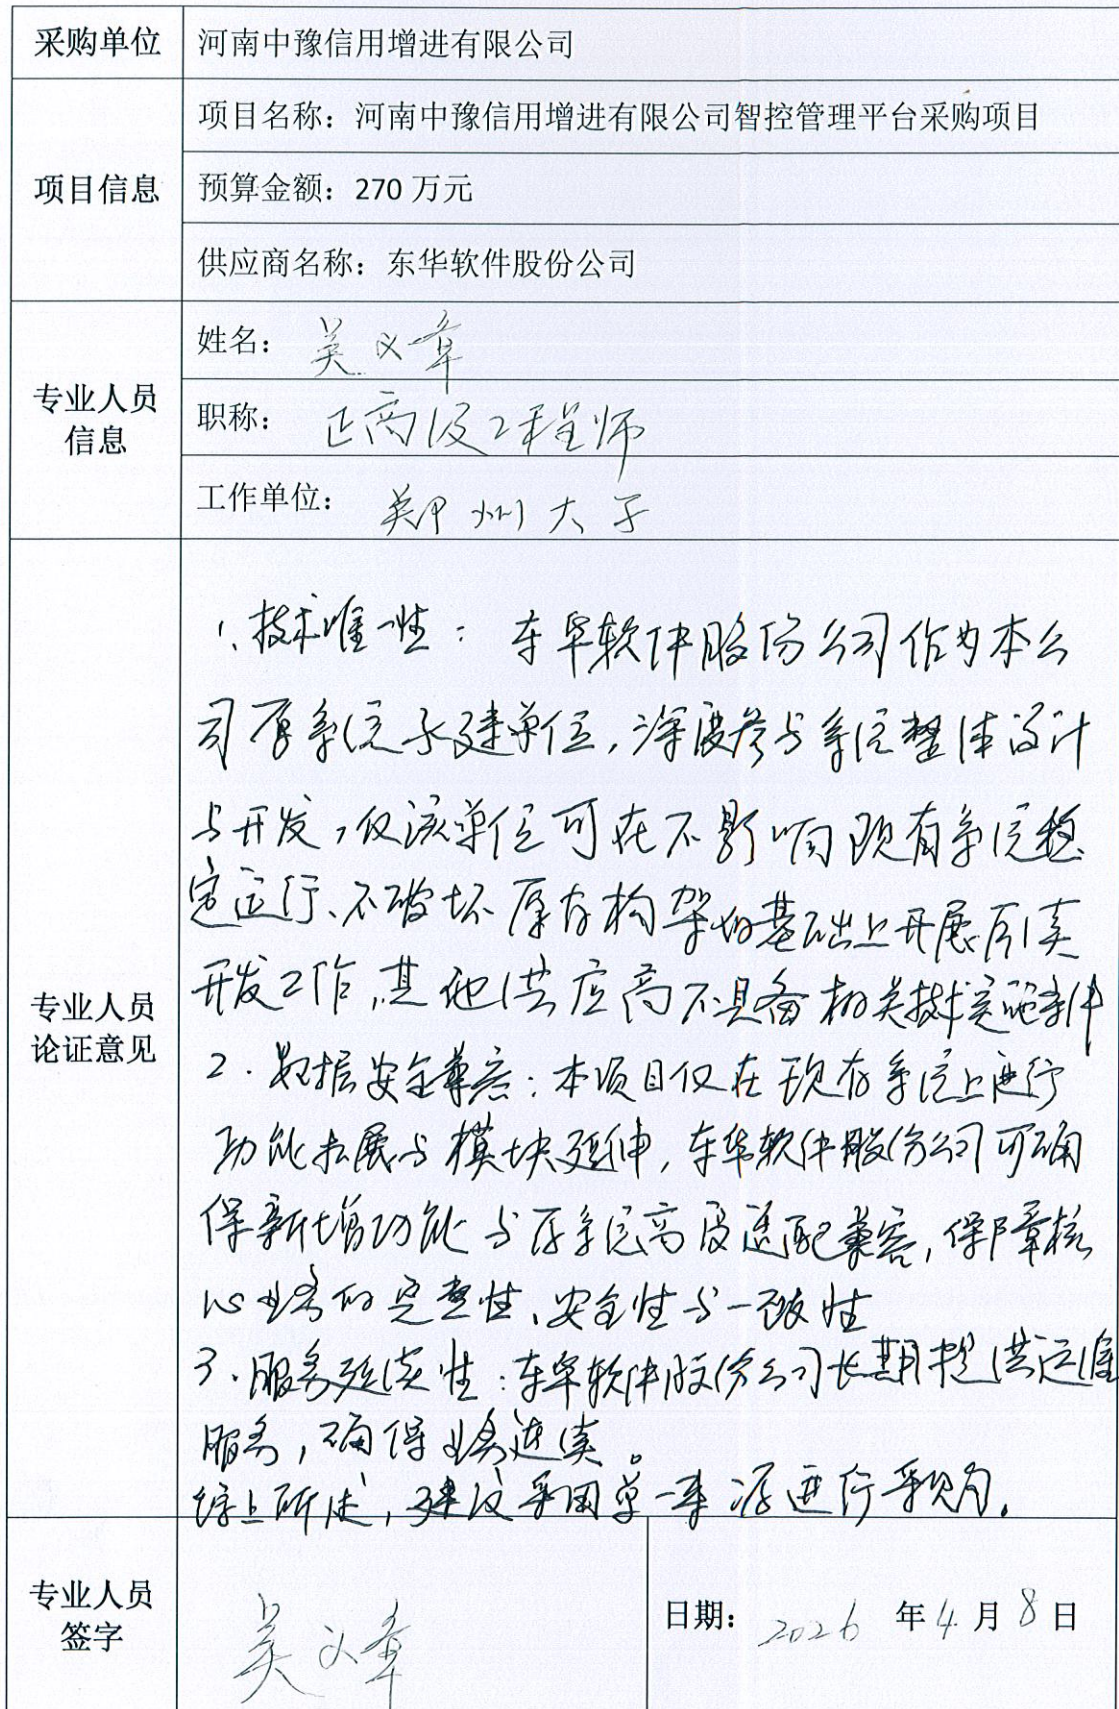 采购单位
河南中豫信用增进有限公司
项目信息
项目名称：河南中豫信用增进有限公司智控管理平台采购项目
预算金额：270 万元
供应商名称：东华软件股份公司
专业人员
信息
姓名：吴义章
职称：正高级工程师
工作单位：郑州大学
专业人员
论证意见
1、技术唯一性：东华软件股份公司作为本公
司原系统承建单位，深度参与系统整体设计
与开发，仅该单位可在不影响现有系统稳
定运行、不破坏原有构架的基础上开展后续
开发工作，其他供应商不具备相关技术实施条件
2.数据安全兼容：本项目仅在现有系统上进行
功能拓展与模块延伸，东华软件股份公司可确
保新增功能与原系统高度适配兼容，保障核
心业务的完整性、安全性与一致性
3.服务延续性：东华软件股份公司长期提供运维
服务，确保业务连续。
综上所述，建议采用单一来源进行采购。
专业人员
签字
吴义章
日期：2026 年 4 月 8 日